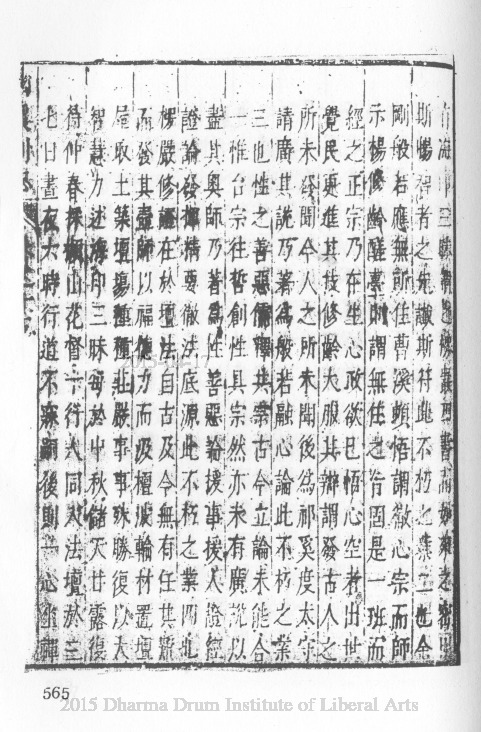 三昧
斯暢智者之先讖斯符此不朽之業二也金
剛般若應無所住曹溪頓悟謂徹心宗而師
示楊修齡醒夢則謂無住之行固是一班而
經之正宗乃在生心政欲已悟心空者出世
覺民更進其技修齡大服其辯謂發古人之
所未發聞今人之所未聞後為祁奚度太守
請廣其說乃著為般若融心論此不朽之業
三也性之善惡儒釋共宗古今立論未能合
一惟台宗往哲創性具宗然亦未有廣說以
盡其奧師乃著為性善惡論援事援人證經
證論發揮精要徹法底源此不朽之業四也
楞嚴修證在於壇法自古及今無有任其
發其師以福德力而汲檀波輪材置壇
取土築壇場種種莊嚴事事殊勝復以大
智慧力述海印三昧每於中秋儲天甘露復
仲春採山花督十行人同入法壇於三
七日晝夜六時行道不寐嗣後則一心坐禪
565
2015 Dharma Drum Institute of Liberal Arts